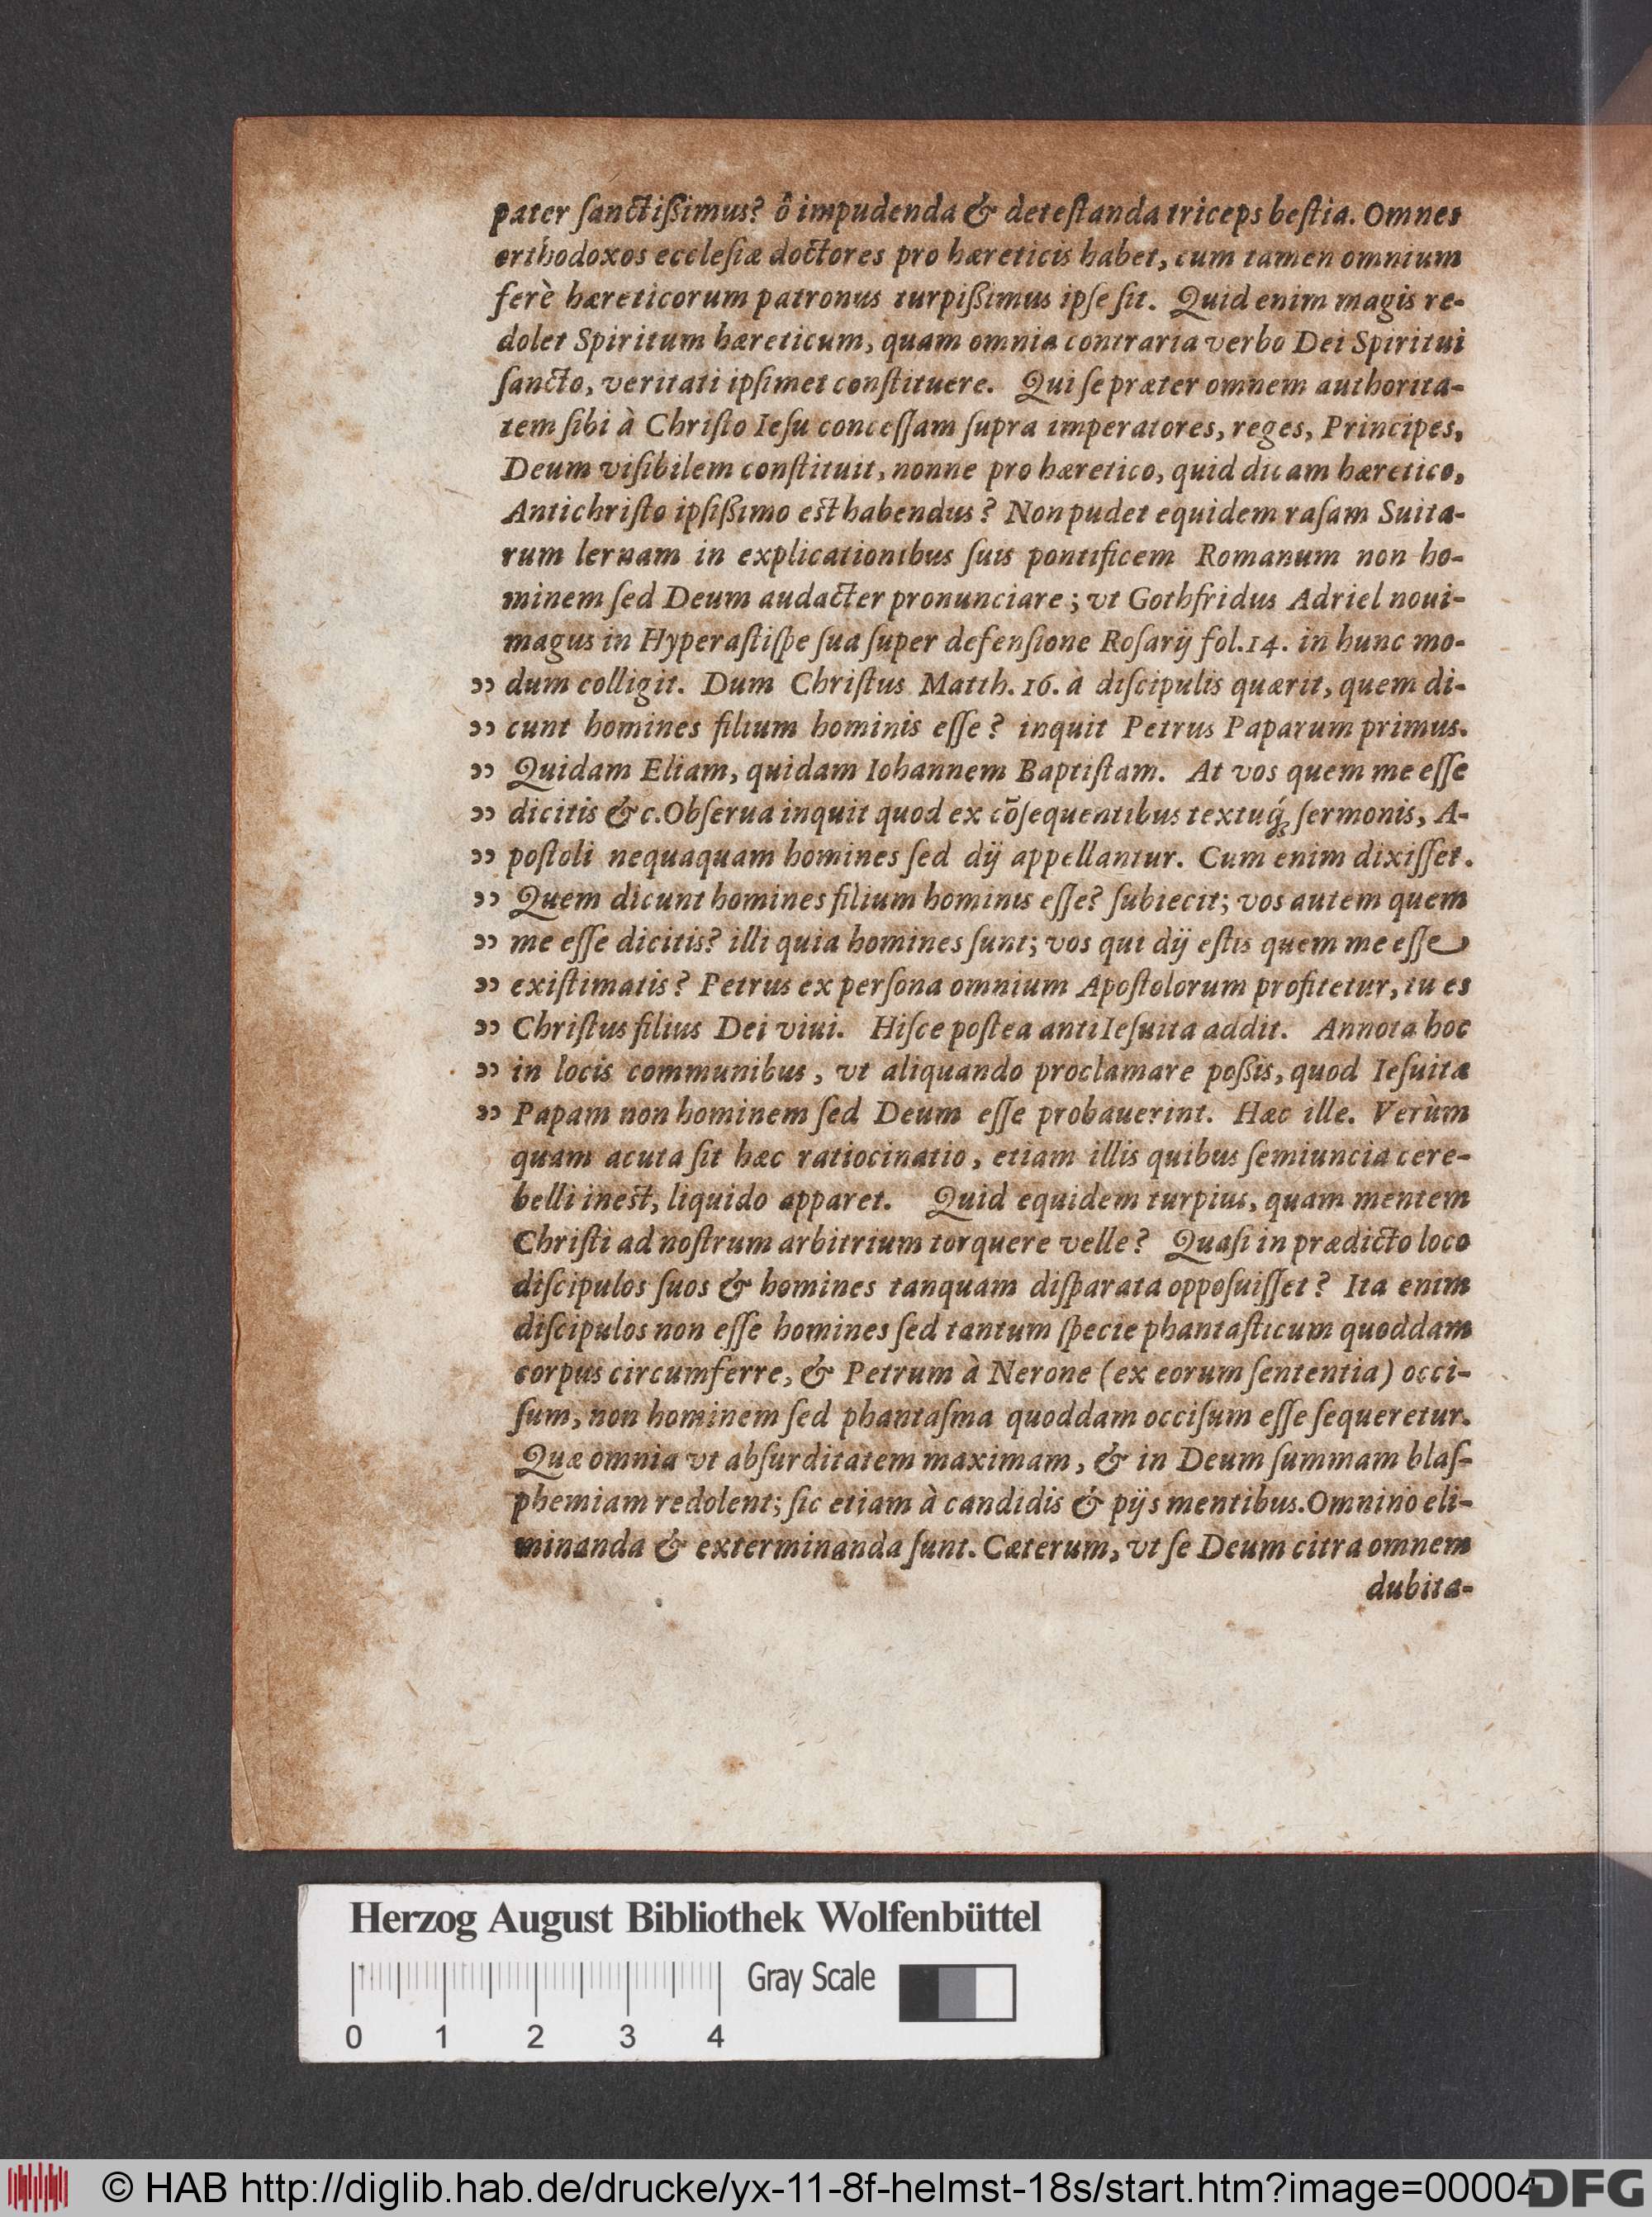 pater ſanctißimus? ô impudenda & deteſtanda triceps beſtia. Omnes
orthodoxos eccleſiæ doctores pro hæreticis habet, cum tamen omnium
ferè hæreticorum patronus turpißimus ipſe ſit. Quid enim magis re-
dolet Spiritum hæreticum, quam omnia contraria verbo Dei Spiritui
ſancto, veritati ipſimet conſtituere. Qui ſe præter omnem authorita-
tem ſibi à Chriſto Ieſu conceſſam ſupra imperatores, reges, Principes,
Deum viſibilem conſtituit, nonne pro hæretico, quid dicam hæretico,
Antichriſto ipſißimo est habendus? Non pudet equidem raſam Suita-
rum lernam in explicationibus ſuis pontificem Romanum non ho-
minem ſed Deum audacter pronunciare; vt Gothfridus Adriel noui-
magus in Hyperaſtiſpe ſua ſuper defenſione Roſarij fol. 14. in hunc mo-
„ dum colligit. Dum Chriſtus Matth. 16. à diſcipulis quærit, quem di-
„ cunt homines filium hominis eſſe? inquit Petrus Paparum primus.
„ Quidam Eliam, quidam Iohannem Baptiſtam. At vos quem me eſſe
„ dicitis &c. Obſerua inquit quod ex cõſequentibus textuq́ꝫ ſermonis, A-
„ poſtoli nequaquam homines ſed dij appellantur. Cum enim dixiſſet.
„ Quem dicunt homines filium hominis eſſe? ſubiecit; vos autem quem
„ me eſſe dicitis? illi quia homines ſunt; vos qui dij eſtis quem me eſſe
„ exiſtimatis? Petrus ex perſona omnium Apoſtolorum profitetur, tu es
„ Chriſtus filius Dei viui. Hiſce poſtea antiIeſuita addit. Annota hoc
„ in locis communibus, vt aliquando proclamare poßis, quod Ieſuitæ
„ Papam non hominem ſed Deum eſſe probauerint. Hæc ille. Verùm
quam acuta ſit hæc ratiocinatio, etiam illis quibus ſemiuncia cere-
belli inest, liquido apparet. Quid equidem turpius, quam mentem
Chriſti ad noſtrum arbitrium torquere velle? Quaſi in prædicto loco
diſcipulos ſuos & homines tanquam diſparata oppoſuiſſet? Ita enim
diſcipulos non eſſe homines ſed tantum ſpecie phantaſticum quoddam
corpus circumferre, & Petrum à Nerone (ex eorum ſententia) occi-
ſum, non hominem ſed phantaſma quoddam occiſum eſſe ſequeretur.
Quæ omnia vt abſurditatem maximam, & in Deum ſummam blaſ-
phemiam redolent; ſic etiam à candidis & pijs mentibus. Omnino eli-
minanda & exterminanda ſunt. Cæterum, vt ſe Deum citra omnem
dubita-
Herzog August Bibliothek Wolfenbüttel
Gray Scale
0 1 2 3 4
© HAB http://diglib.hab.de/drucke/yx-11-8f-helmst-18s/start.htm?image=00004
DFG